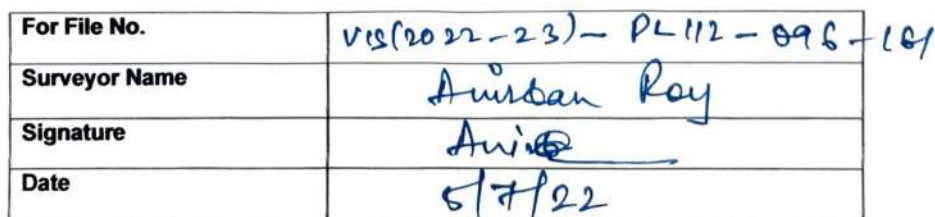 For File No. VIS(2022-23)- PL112-096-161
Surveyor Name Anirban Roy
Signature
Date 5/7/22